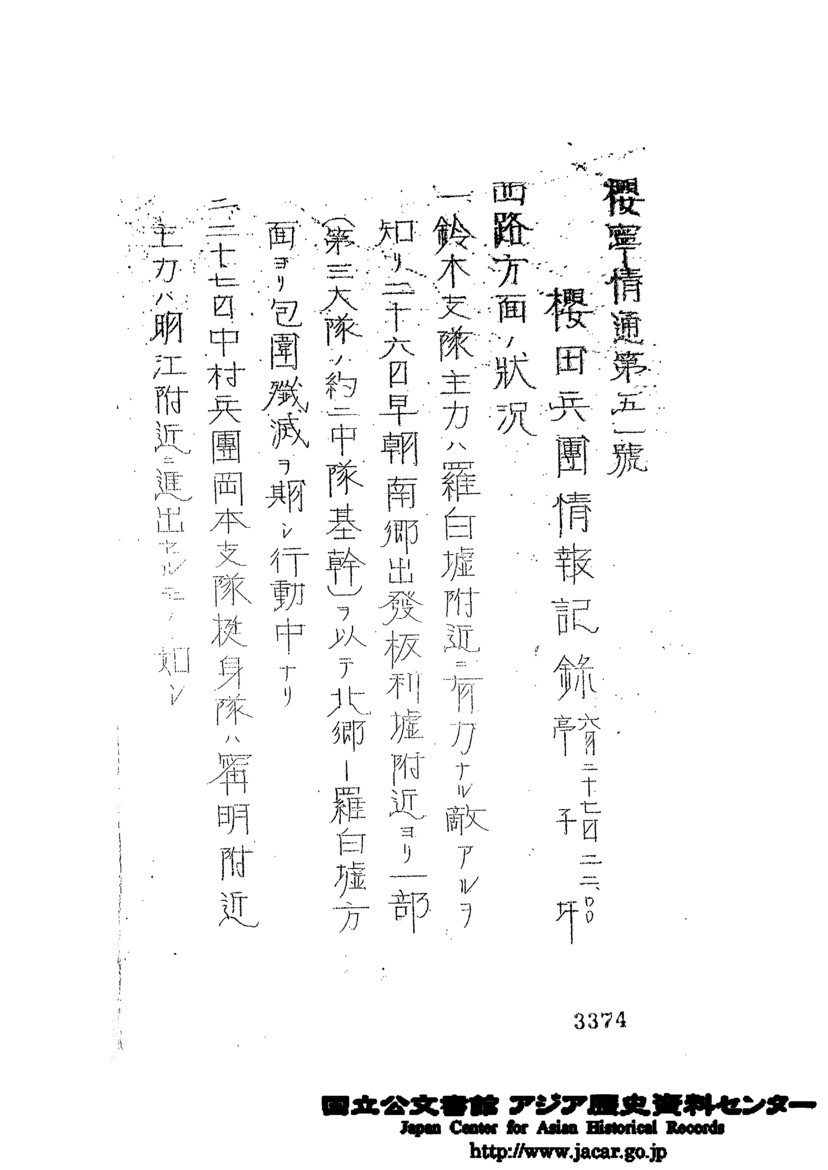 櫻寧情通第五一號
櫻田兵團情報記錄 六月二十七日二二、〇〇 亭子圩
西路方面ノ狀況
一、鈴木支隊主力ハ羅白墟附近ニ有力ナル敵アルヲ
知リ二十六日早朝南鄉出發板利墟附近ヨリ一部
(第三大隊ノ約二中隊基幹)ヲ以テ北鄉ー羅白墟方
面ヨリ包圍殲滅ヲ期シ行動中ナリ
二、二十七日中村兵團岡本支隊挺身隊ハ寗明附近
主力ハ明江附近ニ進出セルモノノ如シ
3374
国立公文書館 アジア歴史資料センター
Japan Center for Asian Historical Records
http://www.jacar.go.jp